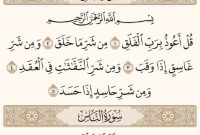 بِسْمِ اللَّهِ الرَّحْمَٰنِ الرَّحِيمِ
قُلْ أَعُوذُ بِرَبِّ الْفَلَقِ ١ مِن شَرِّ مَا خَلَقَ ٢ وَمِن شَرِّ
غَاسِقٍ إِذَا وَقَبَ ٣ وَمِن شَرِّ النَّفَّاثَاتِ فِي الْعُقَدِ ٤
وَمِن شَرِّ حَاسِدٍ إِذَا حَسَدَ ٥
سُورَةُ النَّاسِ